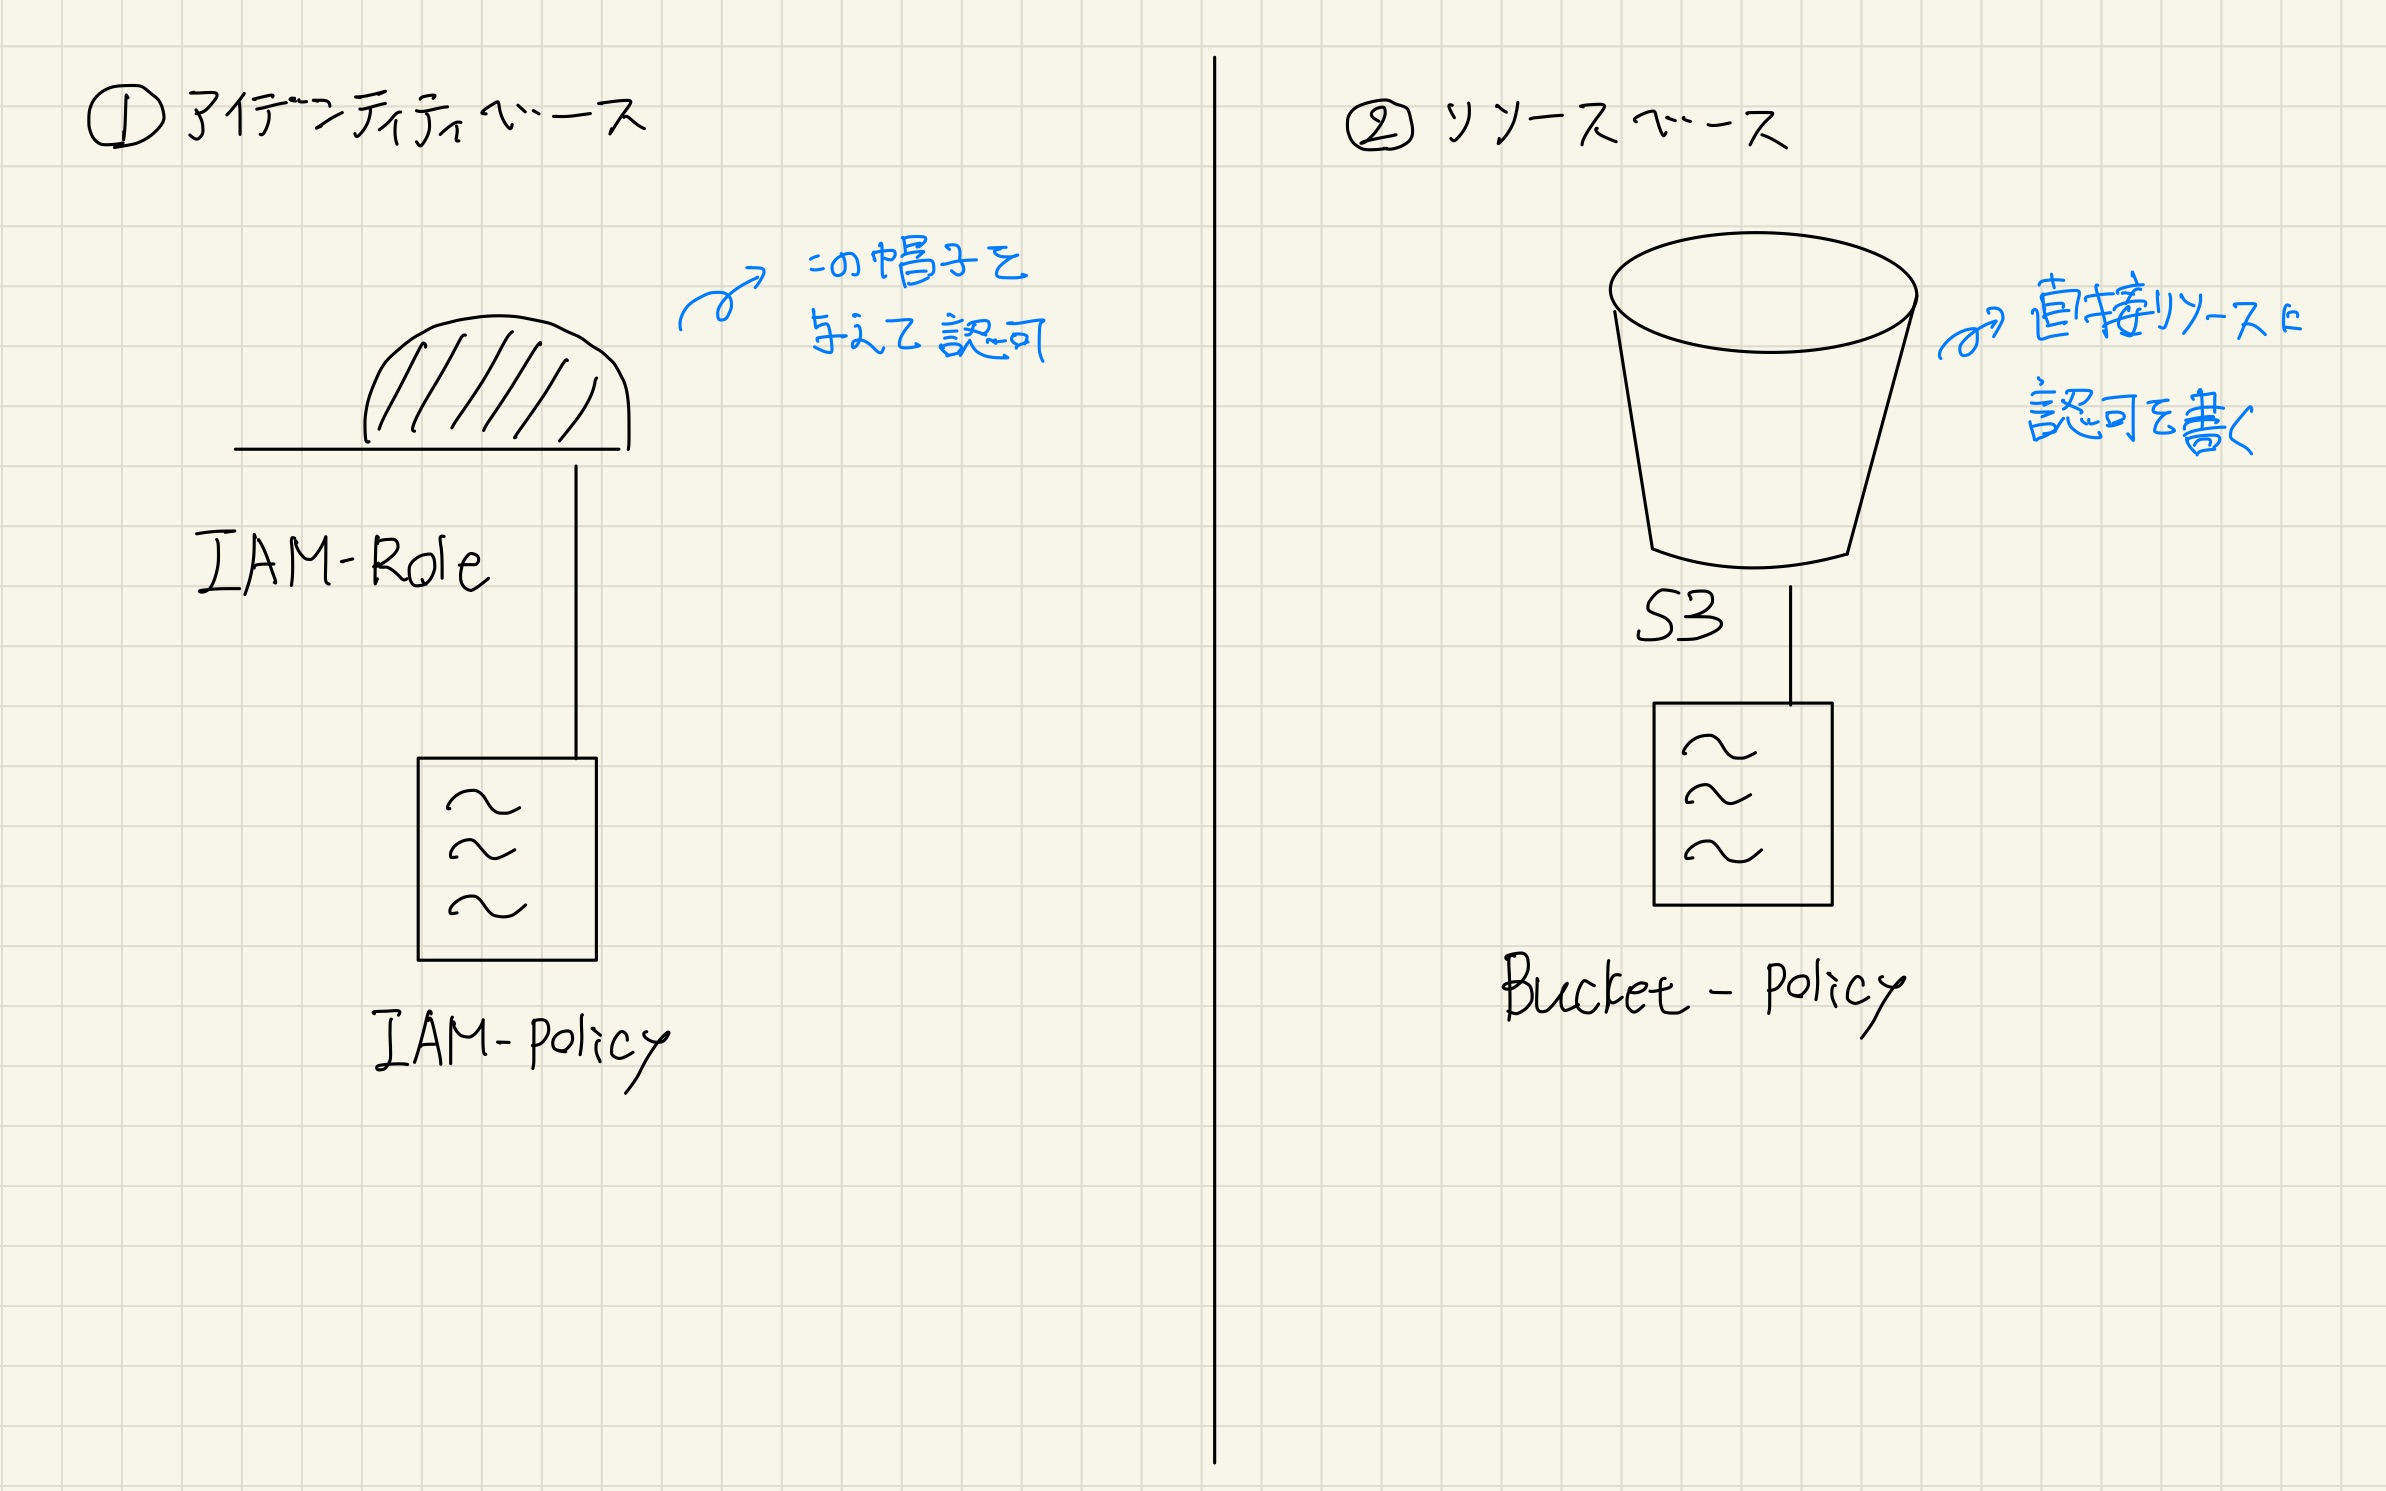 ① アイデンティティベース
この帽子を
与えて認可
IAM-Role
IAM-Policy
② リソースベース
直接リソースに
認可を書く
S3
Bucket-Policy